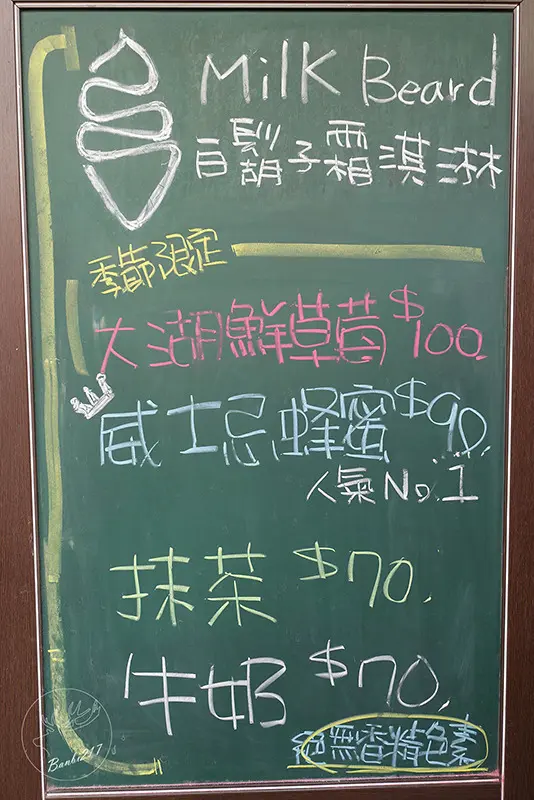 Milk Beard
白鬍子霜淇淋
季節限定
大湖鮮草莓$100.
威士忌蜂蜜$90.
人氣No.1
抹茶 $70.
牛奶 $70.
絕無香精色素
Banbi217